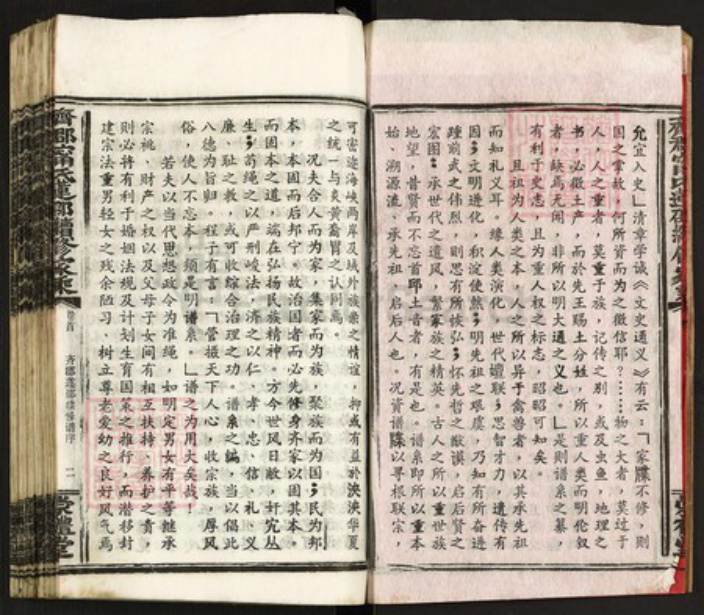 允宜入史」清章学诚《文史通义》有云：「家牒不修，则
国之掌故，何所资而为之徵信耶？……物之大者，莫过于
人，人之重者，莫重于族，记传之别，或及虫鱼，地理之
书，必徵土产，而於先王赐土分姓，所以重人类而明伦叙
者，缺焉无闻，非所以明大通之义也。」是则谱系之纂，
有利于史志，且为重人权之标志，昭昭可知矣。
且祖为人类之本，人之所以异于禽兽者，以其承先祖
而知礼义耳。缘人类演化，世代嬗联；思智才力，遗传有
因；文明进化，积淀使然；明先祖之艰虞，乃知有所奋进
踵前武之伟烈，则思有所恢弘；怀先哲之猷谟，启后贤之
宏图；承世代之遗风，繁家族之精英。古人之所以重世族
地望，昔贤而不忘首邱土音者，有是也。谱系即所以重本
始、溯源流、承先祖、启后人也。况资谱牒以寻根联宗，
可密迩海峡两岸及域外族亲之情谊，抑或有益於泱泱华夏
之统一与炎黄裔胄之认同焉。
况夫合人而为家，集家而为族，聚族而为国；民为邦
本，本固而后邦宁。故治国者而必先修身齐家以固其本。
而固本之道，端在弘扬民族精神。方今世风日敝，奸宄丛
生；苟绳之以严刑峻法，济之以仁、孝、忠、信、礼、义
廉、耻之教，或可收综合治理之功。谱系之编，当以倡此
八德为旨归。程子有言：「管摄天下人心，收宗族，厚风
俗，使人不忘本，须是明谱系。」谱之为用大矣哉！
若夫以当代思想政令为准绳，如明定男女有平等继承
宗祧、财产之权以及父母子女间有相互扶持、养护之责，
则必将有利于婚姻法规及计划生育国策之推行，而潜移封
建宗法重男轻女之残余陋习，树立尊老爱幼之良好风气焉
卷首
齐郡莲邵续修谱序
二